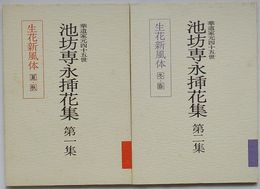 華道家元四十五世
池坊専永挿花集 第二集
生花新風体
華道家元四十五世
池坊専永挿花集 第一集
生花新風体